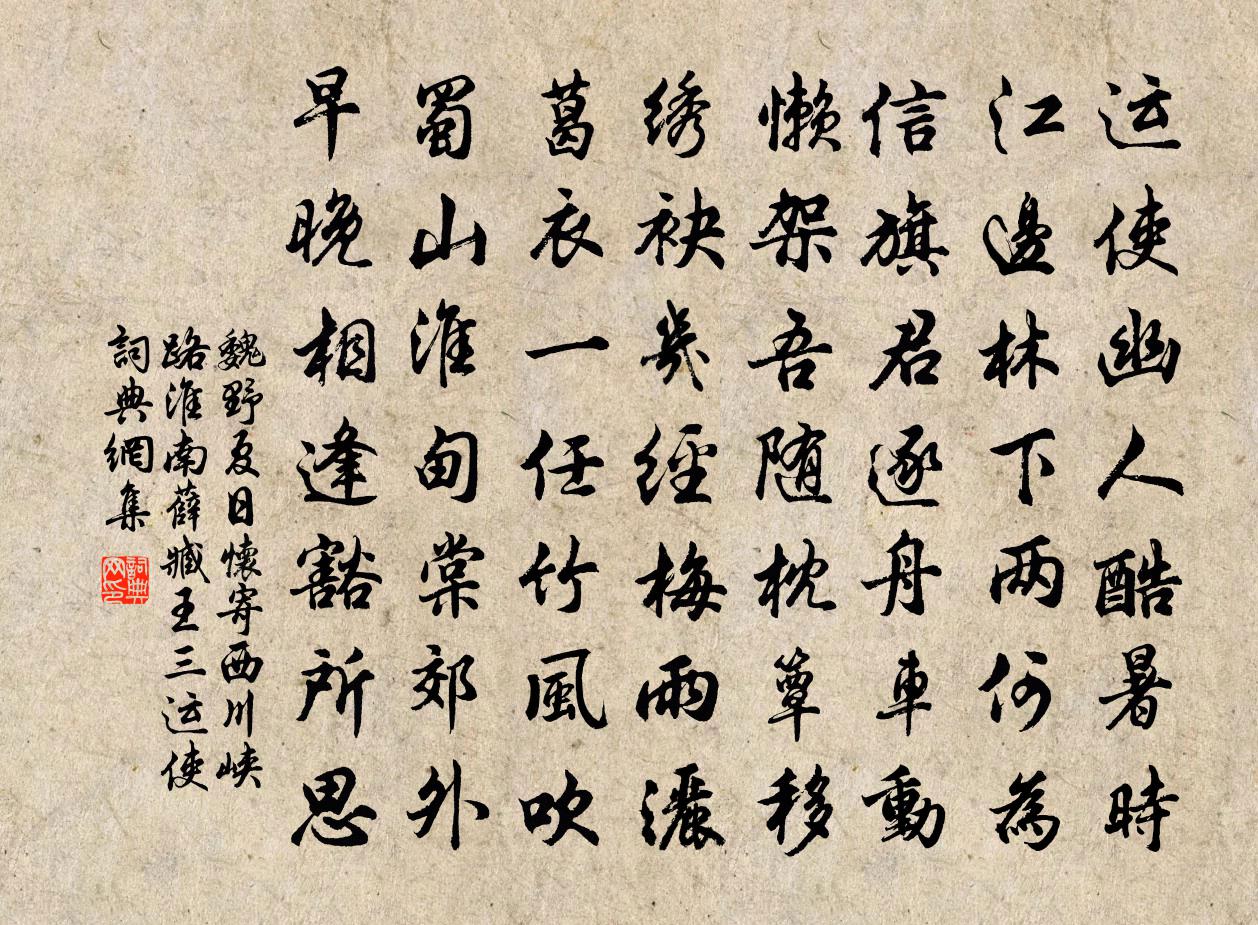 运使幽人酷暑時
江邊林下两何為
信旗君逐舟車動
懒架吾随枕簟移
绣袂幾經梅雨灑
葛衣一任竹風吹
蜀山淮甸棠郊外
早晚相逢豁所思
魏野夏日懷寄西川峡
路淮南薛臧王三运使
詞典網集
詞典网印